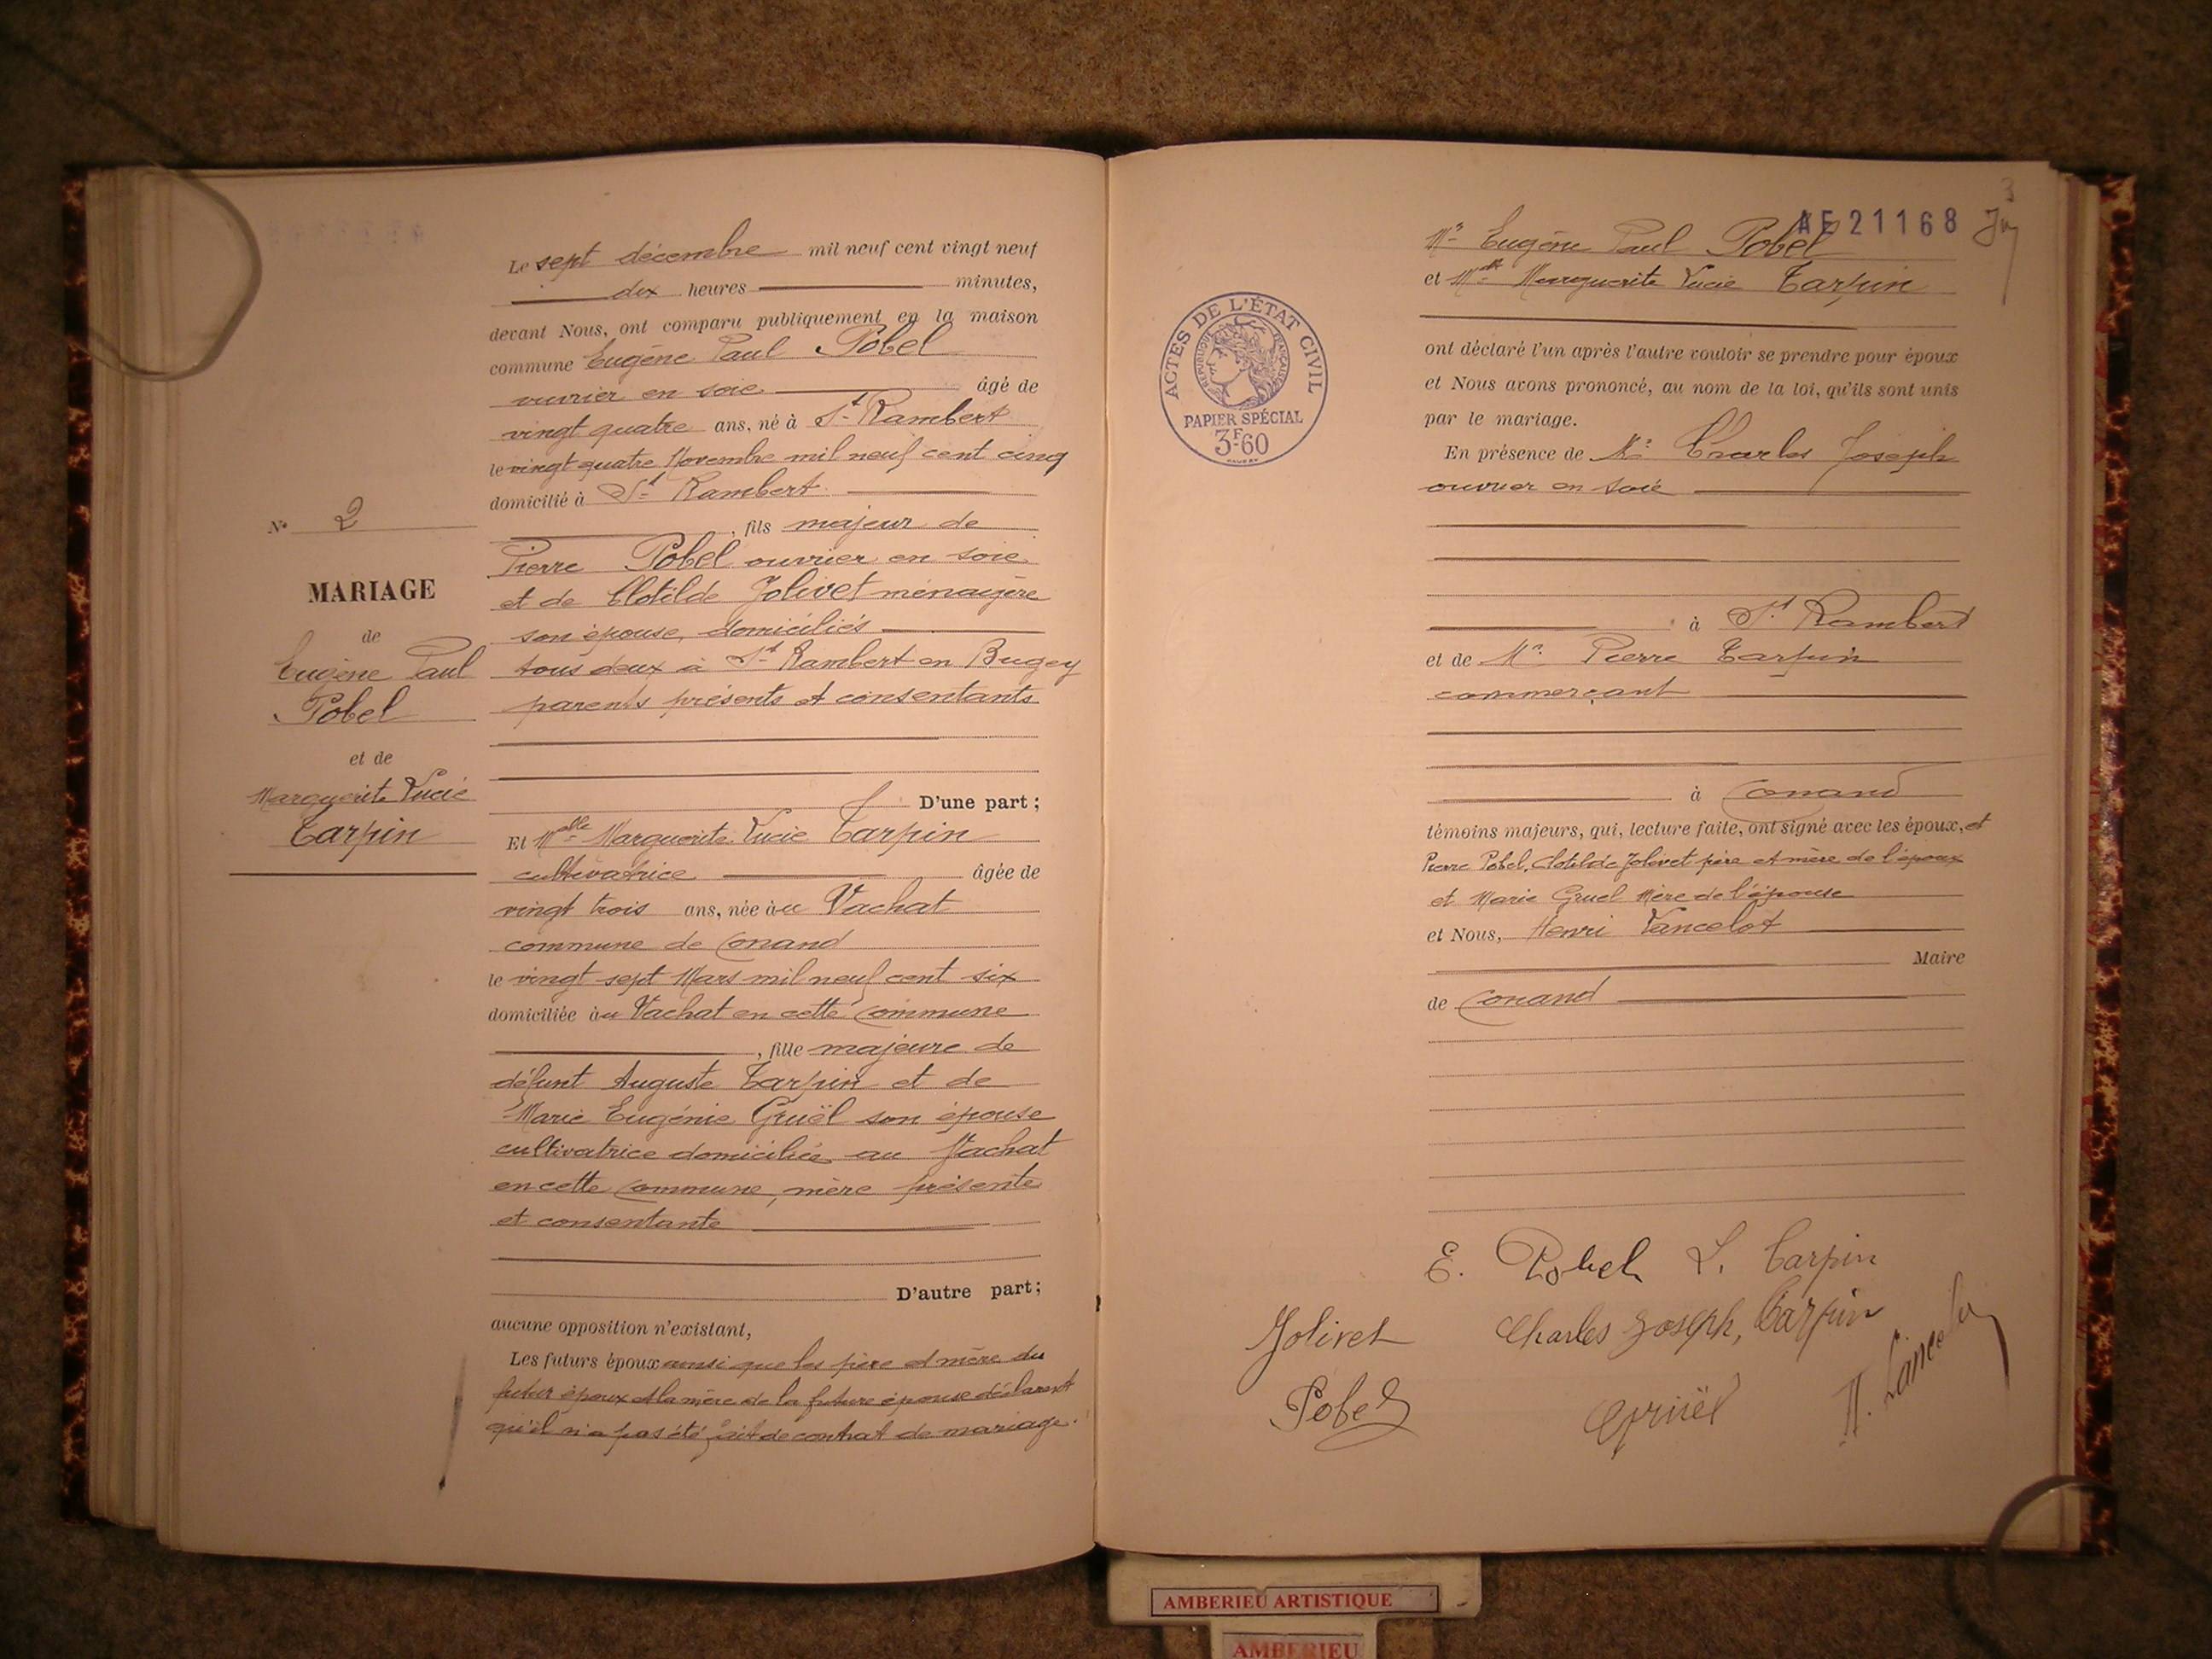 N° 2
MARIAGE
de
Eugène Paul
Pobel
et de
Marguerite Lucie
Tarpin
Le sept décembre mil neuf cent vingt neuf
dix heures minutes,
devant Nous, ont comparu publiquement en la maison
commune Eugène Paul Pobel
ouvrier en soie âgé de
vingt quatre ans, né à St Rambert
le vingt quatre Novembre mil neuf cent cinq
domicilié à St Rambert
, fils majeur de
Pierre Pobel ouvrier en soie
et de Clotilde Jolivet ménagère
son épouse, domiciliés
tous deux à St Rambert en Bugey
parents présents et consentants
D'une part ;
Et Melle Marguerite Lucie Tarpin
cultivatrice âgée de
vingt trois ans, née àu Vachat
commune de Conand
le vingt sept Mars mil neuf cent six
domiciliée àu Vachat en cette commune
, fille majeure de
défunt Auguste Tarpin et de
Marie Eugénie Gruël son épouse
cultivatrice domiciliée au Vachat
en cette commune, mère présente
et consentante
D'autre part ;
aucune opposition n'existant,
Les futurs époux ainsi que les père et mère du
futur époux et la mère de la future épouse déclarent
qu'il n'a pas été fait de contrat de mariage.
3
AE 21168
Mr Eugène Paul Pobel
et Melle Marguerite Lucie Tarpin
ACTES DE L'ÉTAT CIVIL
RÉPUBLIQUE FRANÇAISE
PAPIER SPÉCIAL
3F60
ont déclaré l'un après l'autre vouloir se prendre pour époux
et Nous avons prononcé, au nom de la loi, qu'ils sont unis
par le mariage.
En présence de Mr Charles Joseph
ouvrier en soie
à St Rambert
et de Mr Pierre Tarpin
commerçant
à Conand
témoins majeurs, qui, lecture faite, ont signé avec les époux, et
Pierre Pobel, Clotilde Jolivet père et mère de l'époux
et Marie Gruel Mère de l'épouse
et Nous, Henri Lancelot
Maire
de Conand
E. Pobel L. Tarpin
Jolivet Charles Joseph, Tarpin
Pobel Gruël H. Lancelot
AMBERIEU ARTISTIQUE
AMBERIEU